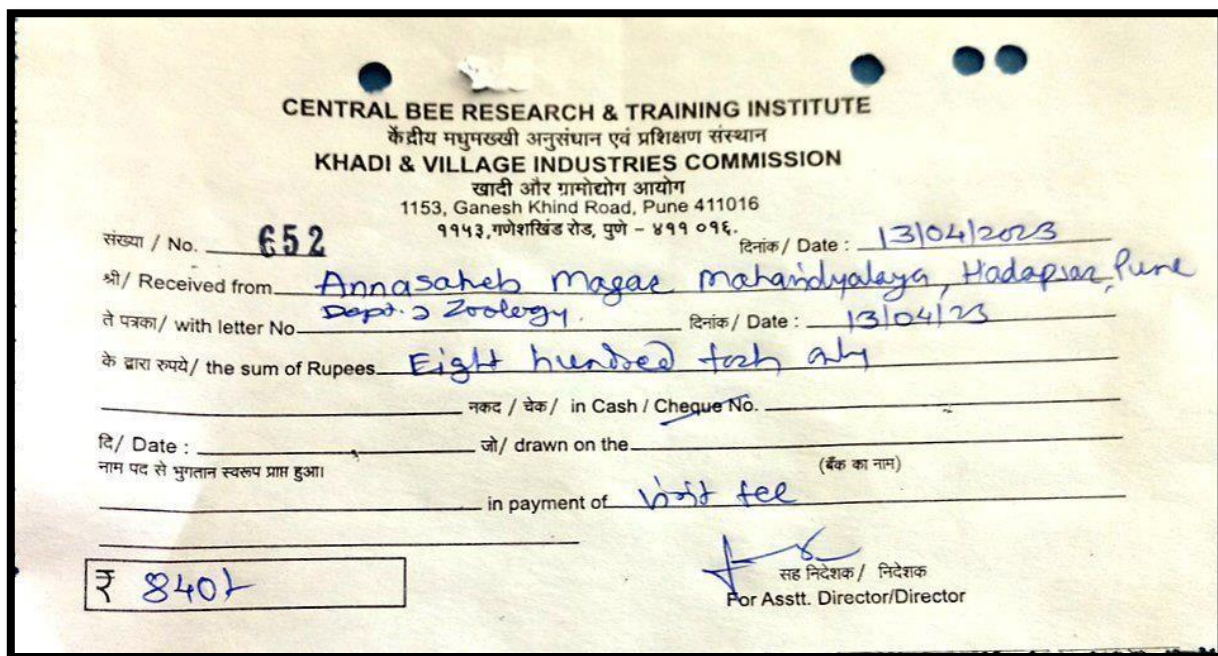 CENTRAL BEE RESEARCH & TRAINING INSTITUTE
केंद्रीय मधुमख्खी अनुसंधान एवं प्रशिक्षण संस्थान
KHADI & VILLAGE INDUSTRIES COMMISSION
खादी और ग्रामोद्योग आयोग
1153, Ganesh Khind Road, Pune 411016
११५३,गणेशखिंड रोड, पुणे – ४११ ०१६.
संख्या / No. 652 दिनांक/ Date : 13/04/2023
श्री/ Received from Annasaheb Magar Mahavidyalaya, Hadapsar, Pune
ते पत्रका/ with letter No Dept. of Zoology. दिनांक/ Date : 13/04/23
के द्वारा रुपये/ the sum of Rupees Eight hundred forty only
नकद / चेक/ in Cash / Cheque No.
दि/ Date : जो/ drawn on the
नाम पद से भुगतान स्वरूप प्राप्त हुआ। (बैंक का नाम)
in payment of visit fee
₹ 840/-
सह निदेशक/ निदेशक
For Asstt. Director/Director